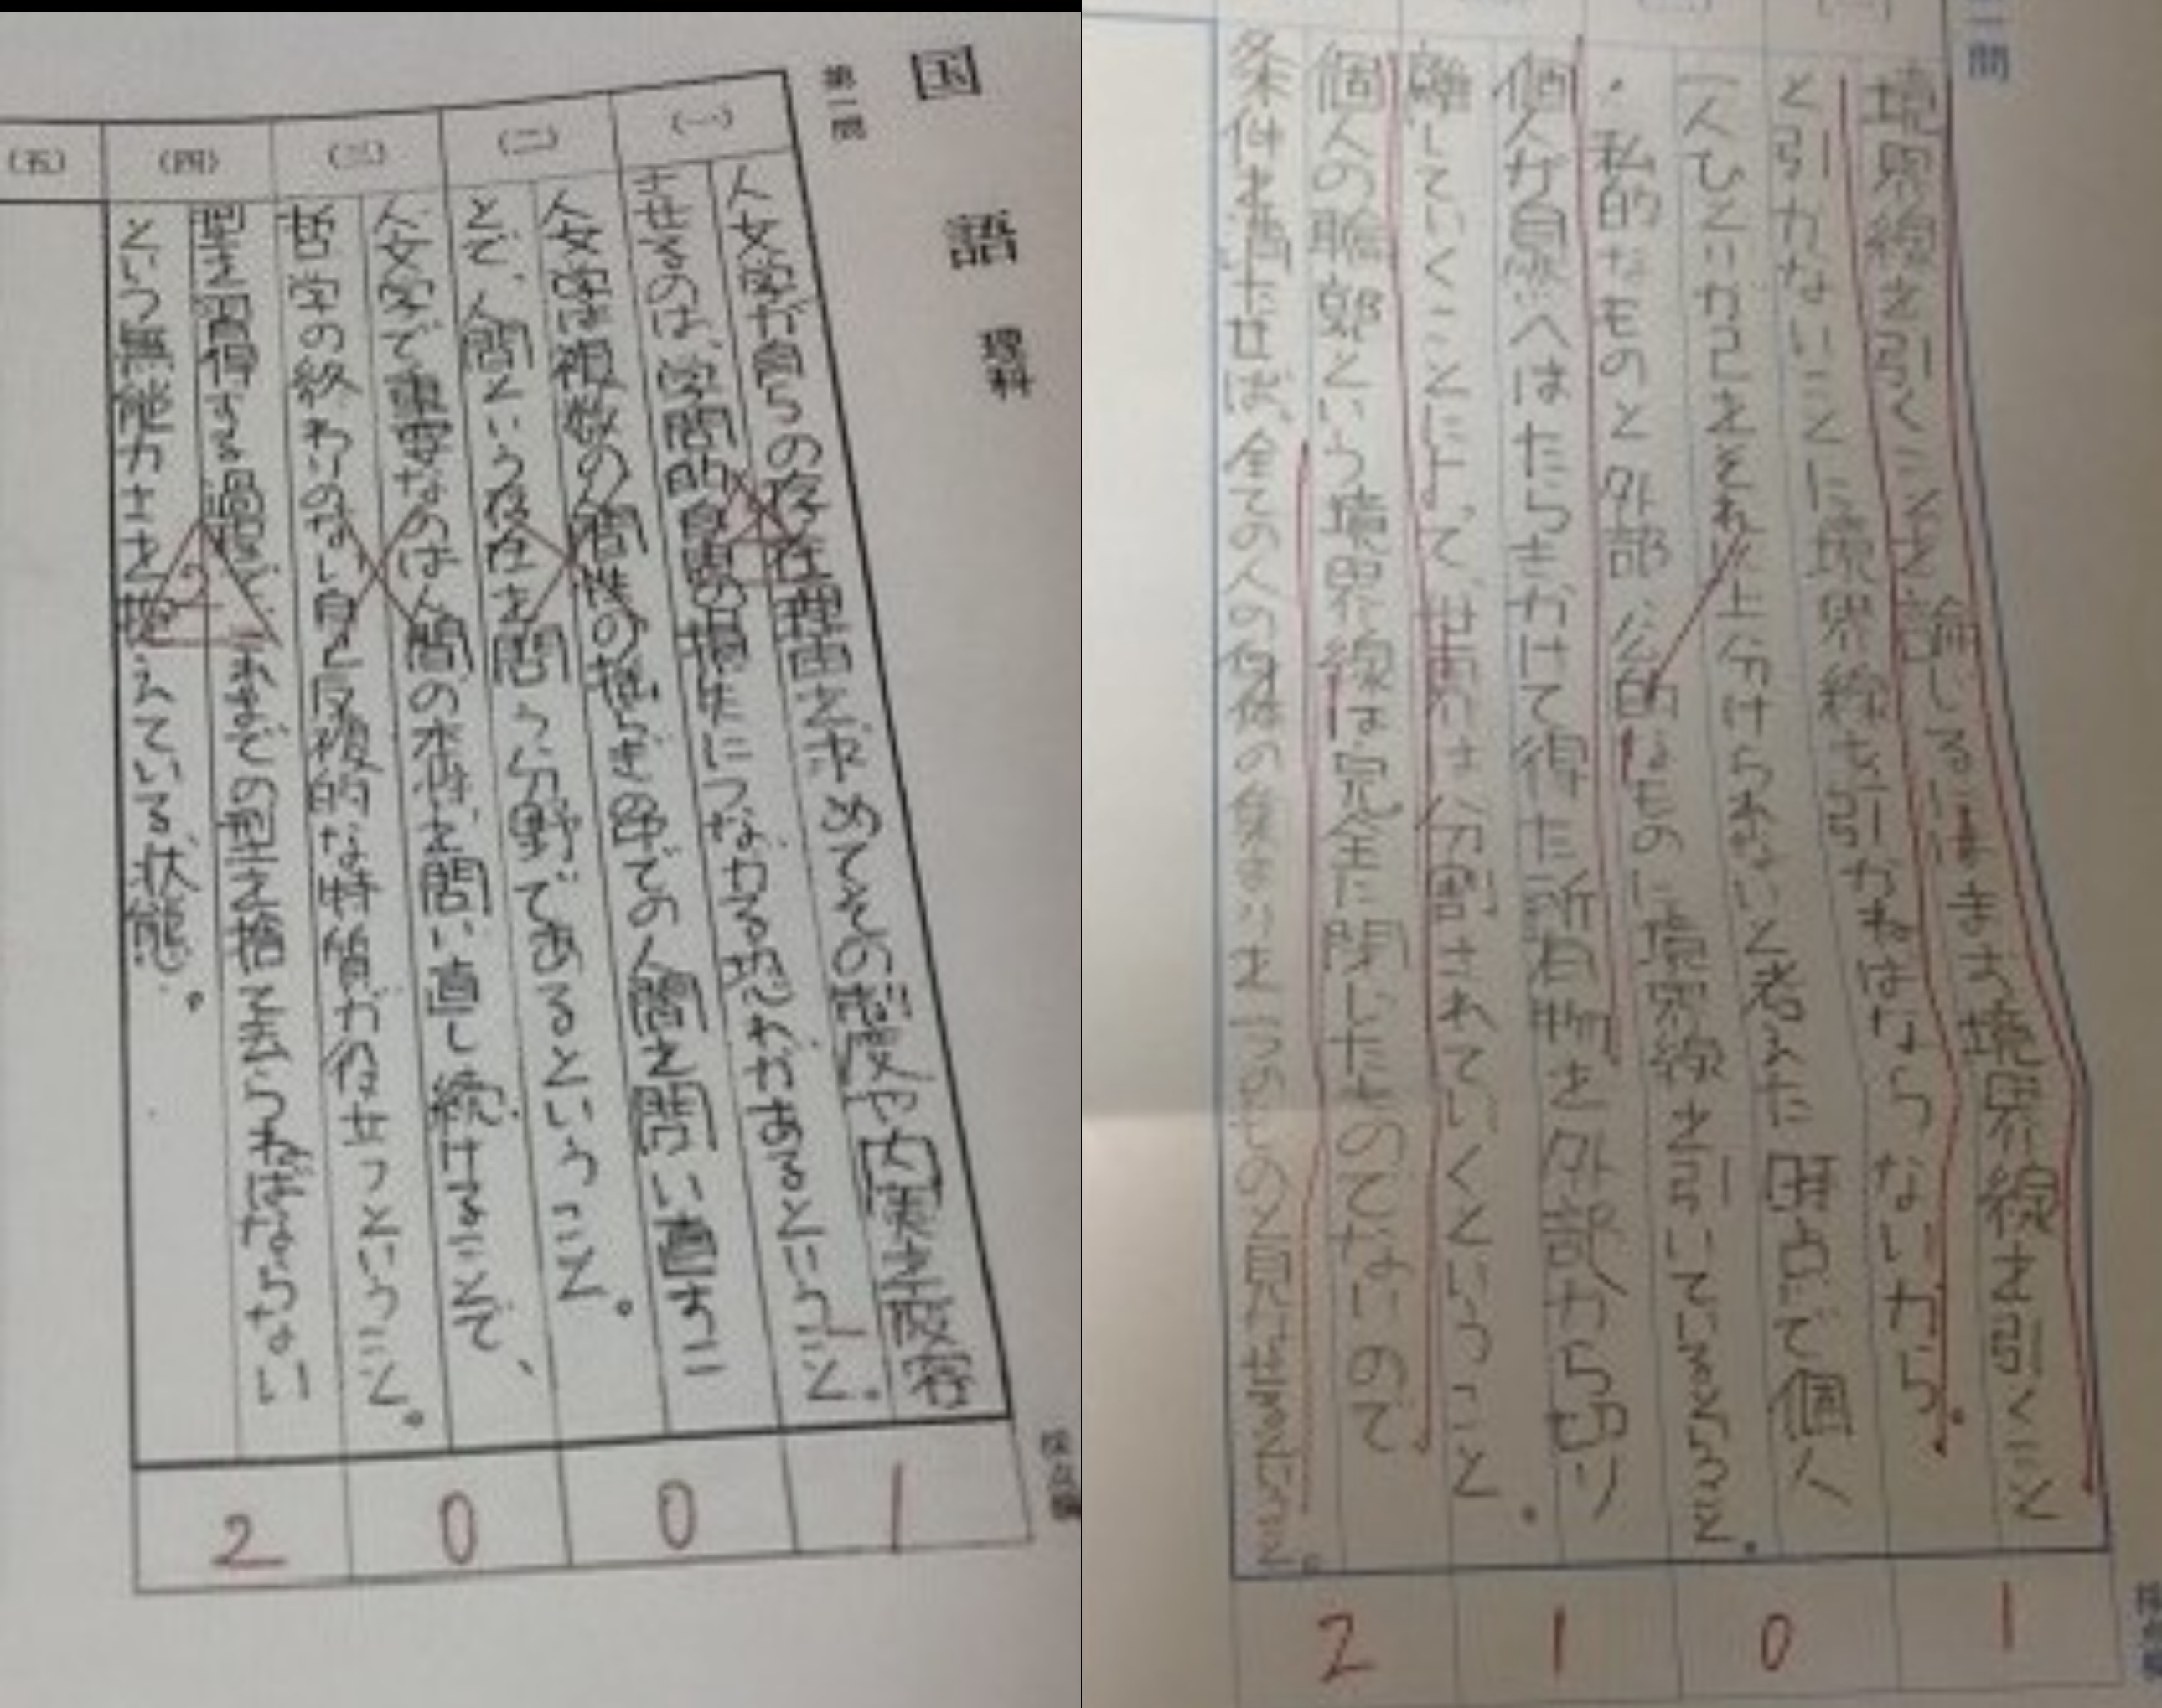 国語 理科
第一問
(一)
人文学が自らの存在理由を求めてその形や内実を変容
させるのは、学問の場につながる恐れがあるということ。
1
(二)
人文学は複数の人間性の揺らぎの中での人間を問い直すこ
とで、人間という存在を問う分野であるということ。
0
(三)
人文学で重要なのは人間の本性を問い直し続けることで、
哲学の終わりのない自己反復的な特質が役立つということ。
0
(四)
型を獲得する過程で、それまでの型を捨て去らねばならない
という無能力さを抱えている状態。
2
(五)
採点欄
一問
(一)
境界線を引くことを論じるにはまず境界線を引くこと
と引かないことに境界線を引かねばならないから。
1
(二)
一人ひとりが己をそれ以上分けられないと考えた時点で個人
・私的なものと外部・公的なものに境界線を引いているということ。
0
個人が自然へはたらきかけて得た所有物を外部から切り
離していくことによって、世界は分割されていくということ。
1
個人の輪郭という境界線は完全に閉じたものでないので
条件を満たせば、全ての人の身体の集まりを一つのものと見なせるということ。
2